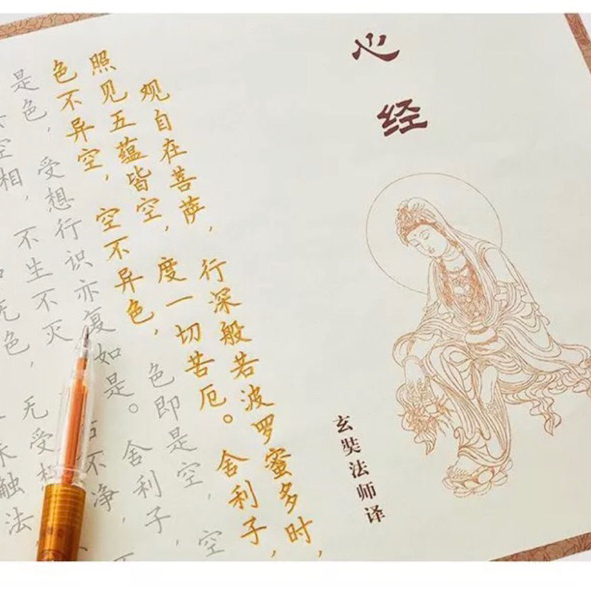 心经
玄奘法师译
观自在菩萨，行深般若波罗蜜多时，
照见五蕴皆空，度一切苦厄。舍利子，
色不异空，空不异色，色即是空，空
是色，受想行识亦复如是。舍利子，
空相，不生不灭不净，
无色，无受
触法